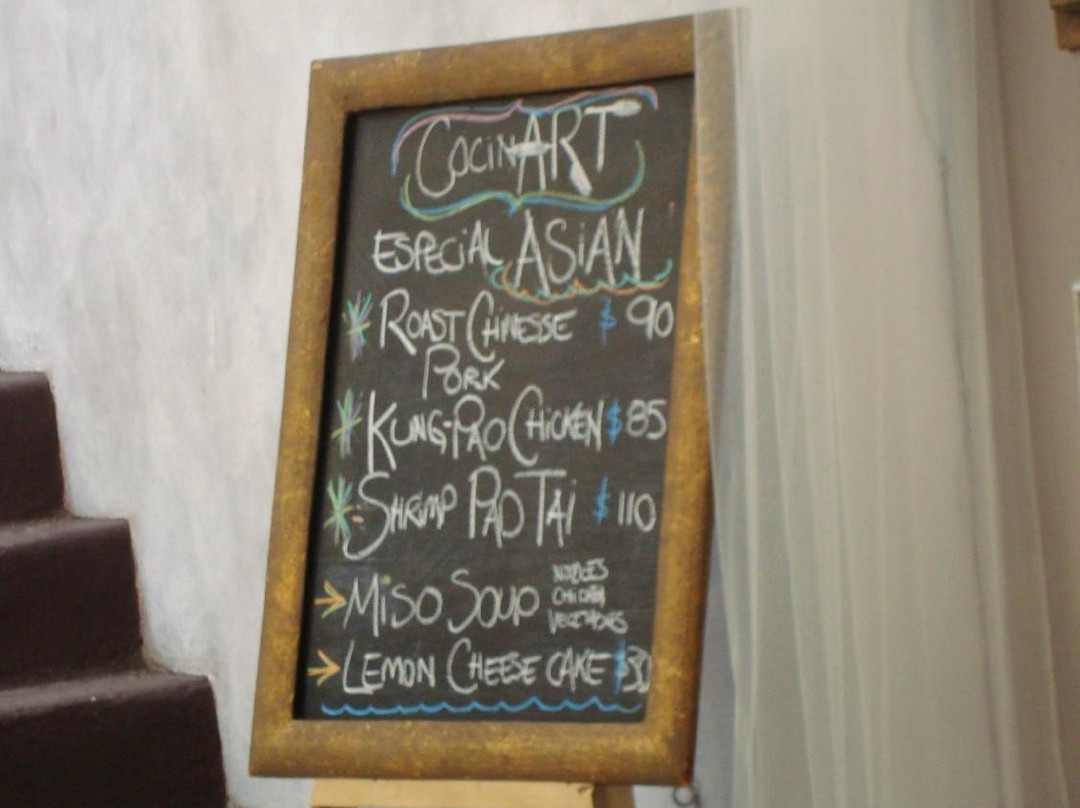 COCINART
ESPECIAL ASIAN
ROAST CHINESSE $ 90
PORK
KUNG-PAO CHICKEN $85
SHRIMP PAD TAI $ 110
MISO SOUP NOODLES
CHICKEN
VEGETABLES
LEMON CHEESE CAKE $30